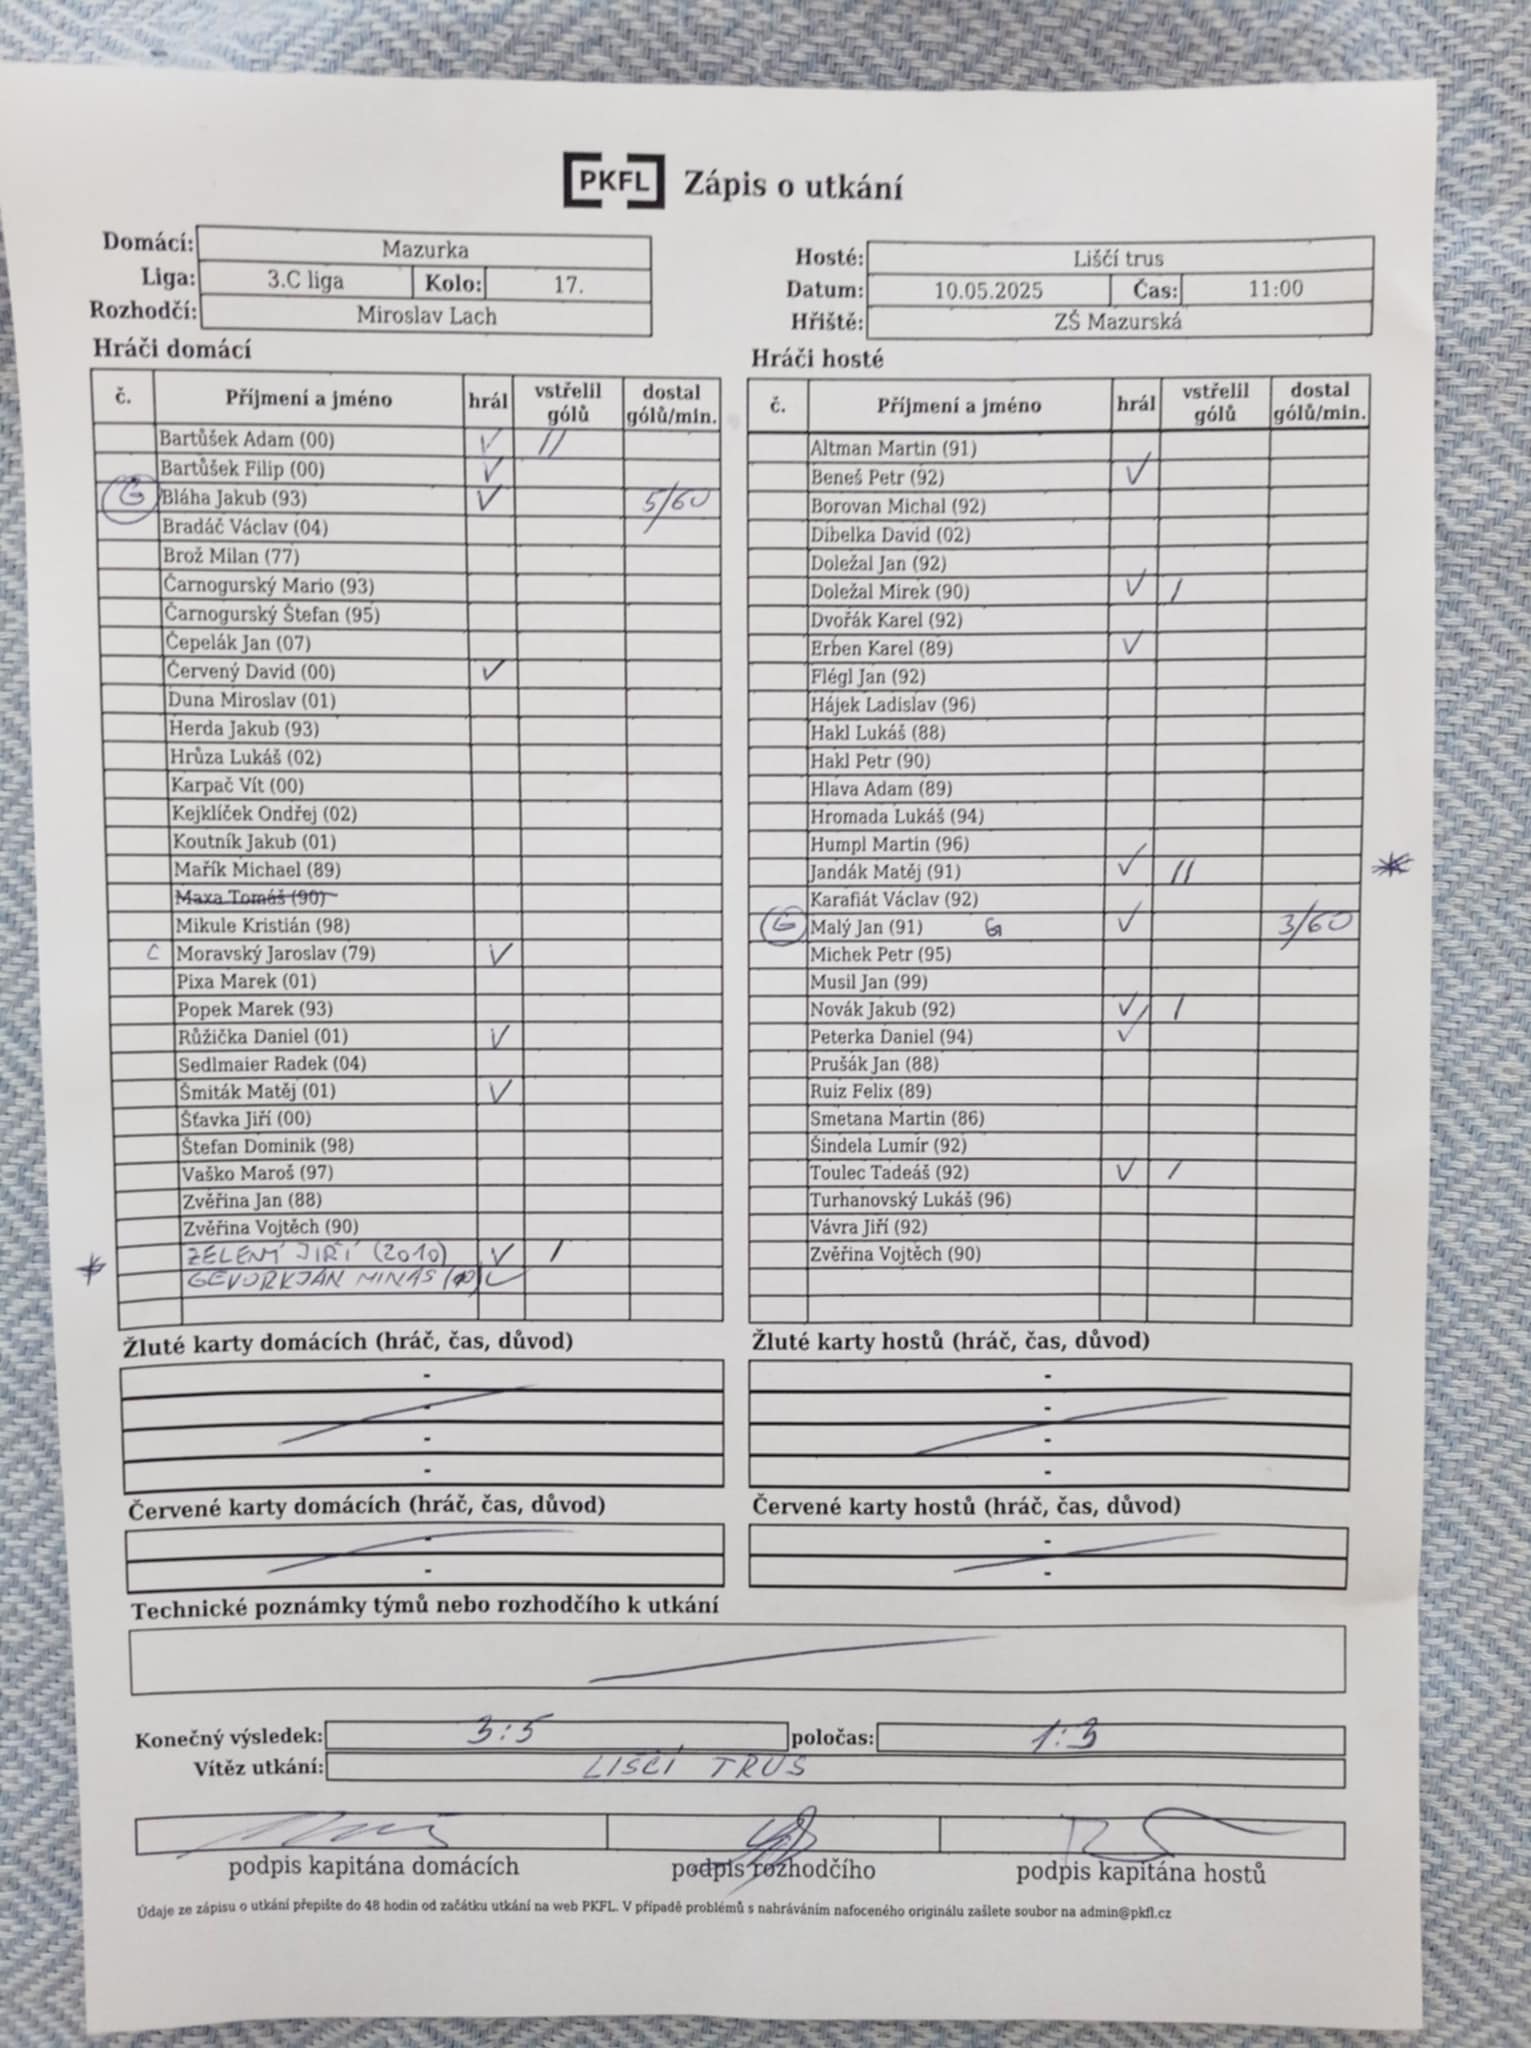 PKFL Zápis o utkání
Domácí: Mazurka
Liga: 3.C liga Kolo: 17.
Rozhodčí: Miroslav Lach
Hosté: Liščí trus
Datum: 10.05.2025 Čas: 11:00
Hřiště: ZŠ Mazurská
Hráči domácí
č. Příjmení a jméno hrál vstřelil gólů dostal gólů/min.
Bartůšek Adam (00) ✓ //
Bartůšek Filip (00) ✓
G Bláha Jakub (93) ✓ 5/60
Bradáč Václav (04)
Brož Milan (77)
Čarnogurský Mario (93)
Čarnogurský Štefan (95)
Čepelák Jan (07)
Červený David (00) ✓
Duna Miroslav (01)
Herda Jakub (93)
Hrůza Lukáš (02)
Karpač Vít (00)
Kejklíček Ondřej (02)
Koutník Jakub (01)
Mařík Michael (89)
Maxa Tomáš (90)
Mikule Kristián (98)
C Moravský Jaroslav (79) ✓
Pixa Marek (01)
Popek Marek (93)
Růžička Daniel (01) ✓
Sedlmaier Radek (04)
Šmiták Matěj (01) ✓
Šťavka Jiří (00)
Štefan Dominik (98)
Vaško Maroš (97)
Zvěřina Jan (88)
Zvěřina Vojtěch (90)
ZELENÝ JIŘÍ (2010) ✓ /
* GEVORKJÁN MINAS ✓
Hráči hosté
č. Příjmení a jméno hrál vstřelil gólů dostal gólů/min.
Altman Martin (91)
Beneš Petr (92) ✓
Borovan Michal (92)
Dibelka David (02)
Doležal Jan (92)
Doležal Mirek (90) ✓ /
Dvořák Karel (92)
Erben Karel (89) ✓
Flégl Jan (92)
Hájek Ladislav (96)
Hakl Lukáš (88)
Hakl Petr (90)
Hlava Adam (89)
Hromada Lukáš (94)
Humpl Martin (96)
Jandák Matěj (91) ✓ // *
Karafiát Václav (92)
G Malý Jan (91) G ✓ 3/60
Michek Petr (95)
Musil Jan (99)
Novák Jakub (92) ✓ /
Peterka Daniel (94) ✓
Prušák Jan (88)
Ruiz Felix (89)
Smetana Martin (86)
Šindela Lumír (92)
Toulec Tadeáš (92) ✓ /
Turhanovský Lukáš (96)
Vávra Jiří (92)
Zvěřina Vojtěch (90)
Žluté karty domácích (hráč, čas, důvod)
-
-
-
-
Žluté karty hostů (hráč, čas, důvod)
-
-
-
-
Červené karty domácích (hráč, čas, důvod)
-
-
Červené karty hostů (hráč, čas, důvod)
-
-
Technické poznámky týmů nebo rozhodčího k utkání
Konečný výsledek: 3:5 poločas: 1:3
Vítěz utkání: LIŠČÍ TRUS
podpis kapitána domácích podpis rozhodčího podpis kapitána hostů
Údaje ze zápisu o utkání přepište do 48 hodin od začátku utkání na web PKFL. V případě problémů s nahráváním nafoceného originálu zašlete soubor na admin@pkfl.cz